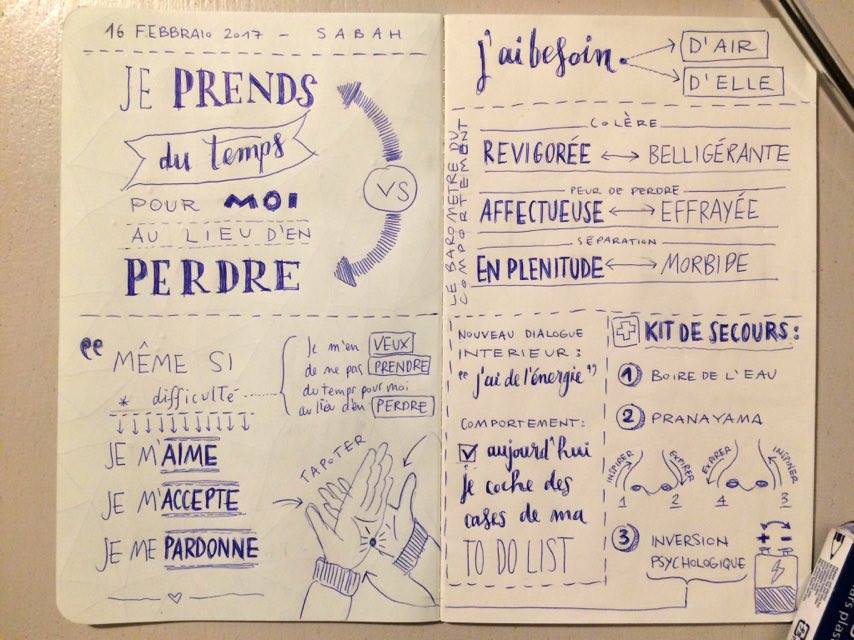 16 FEBBRAIO 2017 - SABAH
JE PRENDS
du temps
POUR MOI
AU LIEU D'EN
PERDRE
VS
MÊME SI
* difficulté
Je m'en VEUX
de ne pas PRENDRE
du temps pour moi
au lieu d'en PERDRE
JE M'AIME
JE M'ACCEPTE
JE ME PARDONNE
TAPOTER
j'ai besoin
D'AIR
D'ELLE
LE BAROMETRE DU
COMPORTEMENT
COLÈRE
REVIGORÉE BELLIGÉRANTE
PEUR DE PERDRE
AFFECTUEUSE EFFRAYÉE
SÉPARATION
EN PLENITUDE MORBIDE
NOUVEAU DIALOGUE
INTERIEUR :
"j'ai de l'énergie"
COMPORTEMENT:
aujourd'hui
je coche des
cases de ma
TO DO LIST
KIT DE SECOURS :
1 BOIRE DE L'EAU
2 PRANAYAMA
INSPIRER EXPIRER EXPIRER INSPIRER
1 2 4 3
3 INVERSION
PSYCHOLOGIQUE
+ -